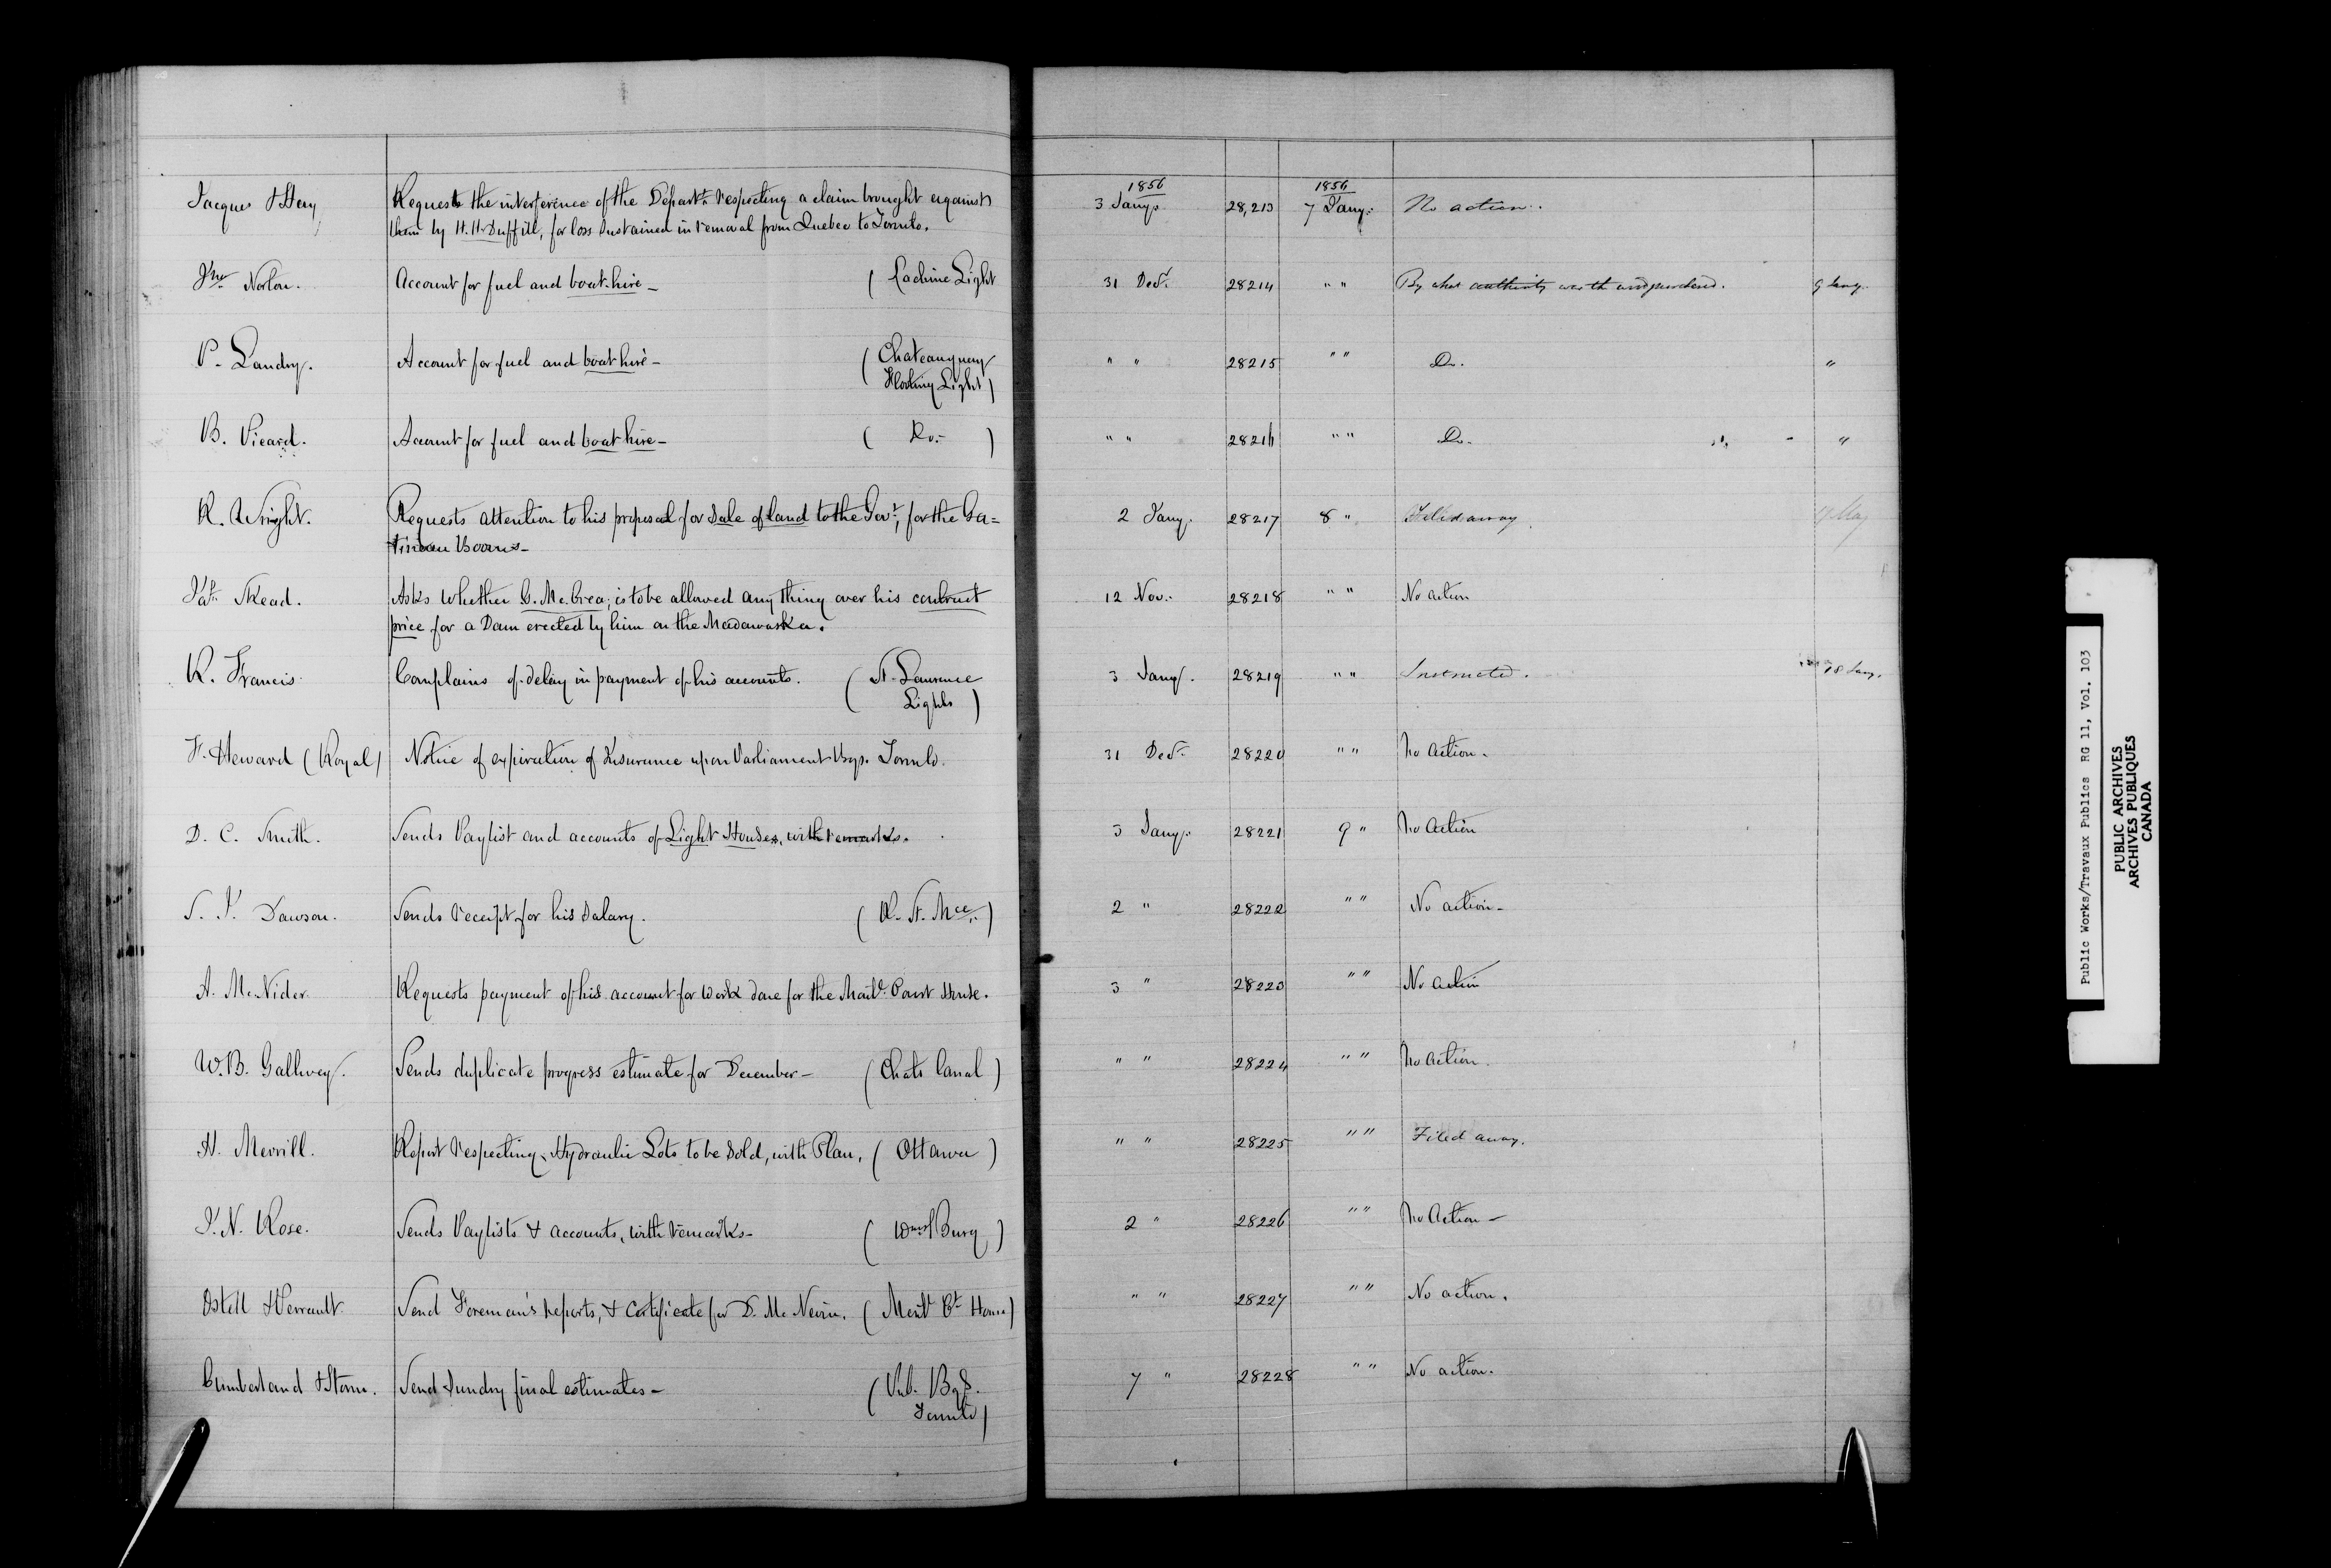 1856 1856
Jacques & Hay Requests the interference of the Departt. respecting a claim brought against 3 Jany. 28,213 7 Jany. No action.
them by H. H. Duffill, for loss sustained in removal from Quebec to Toronto.
Jno. Norton. Account for fuel and boat-hire - ( Lachine Light 31 Decr. 28214 " " By what authority was the wood purchased. 9 Jany.
P. Landry. Account for fuel and boat hire - ( Chateauguay 28215 " " Do. "
Floating Light )
B. Picard. Account for fuel and boat hire - ( Do. - ) " " 28216 " " Do. "
R. Wright. Requests attention to his proposal for sale of land to the Govt, for the Ga= 2 Jany. 28217 8 " Filed away. May
tineau Booms -
Jas. Skead. Asks whether D. McCrea, is to be allowed any thing over his contract 12 Nov. 28218 " " No action
price for a Dam erected by him on the Madawaska.
R. Francis Complains of delay in payment of his accounts. ( St. Lawrence 3 Jany. 28219 " " Instructed. 18 Jany.
Lights )
F. Heward (Royal) Notice of expiration of Insurance upon Parliament Bgs. Toronto. 31 Decr. 28220 " " No Action.
D. C. Smith. Sends Paylist and accounts of Light Houses, with remarks. 3 Jany. 28221 9 " No Action
S. J. Dawson. Sends receipt for his salary. ( R. St. Mce. ) 2 " 28222 " " No action -
A. McNider. Requests payment of his account for work done for the Montl. Court House. 3 " 28223 " " No Action
W. B. Gallwey. Sends duplicate progress estimate for December - ( Chats Canal ) " " 28224 " " No Action.
H. Merrill. Report respecting Hydraulic Lots to be sold, with Plan. ( Ottawa ) " " 28225 " " Filed away.
J. N. Rose. Sends Paylists & accounts, with remarks - ( WmsBurg ) 2 " 28226 " " No Action -
Ostell & Perrault Send Foreman's reports, & certificate for D. McNevin. ( Montl Ct House ) " " 28227 " " No action.
Cumberland & Storm. Send sundry final estimates - ( Pub. Bgs. 7 " 28228 " " No action.
Toronto )
Public Works/Travaux Publics RG 11, Vol. 103
PUBLIC ARCHIVES
ARCHIVES PUBLIQUES
CANADA